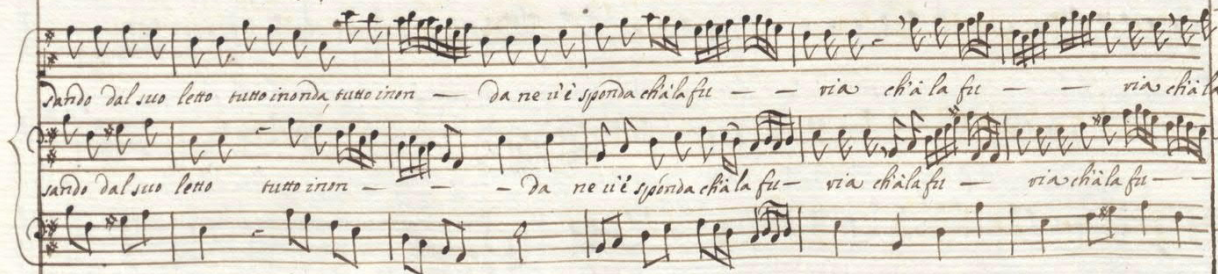 sando dal suo letto tutto inonda, tutto inon — — da ne v'è sponda ch'à la fu — — ria ch'à la fu — — ria ch'à la
sando dal suo letto tutto inon — — — da ne v'è sponda ch'à la fu — ria ch'à la fu — ria ch'à la fu — —